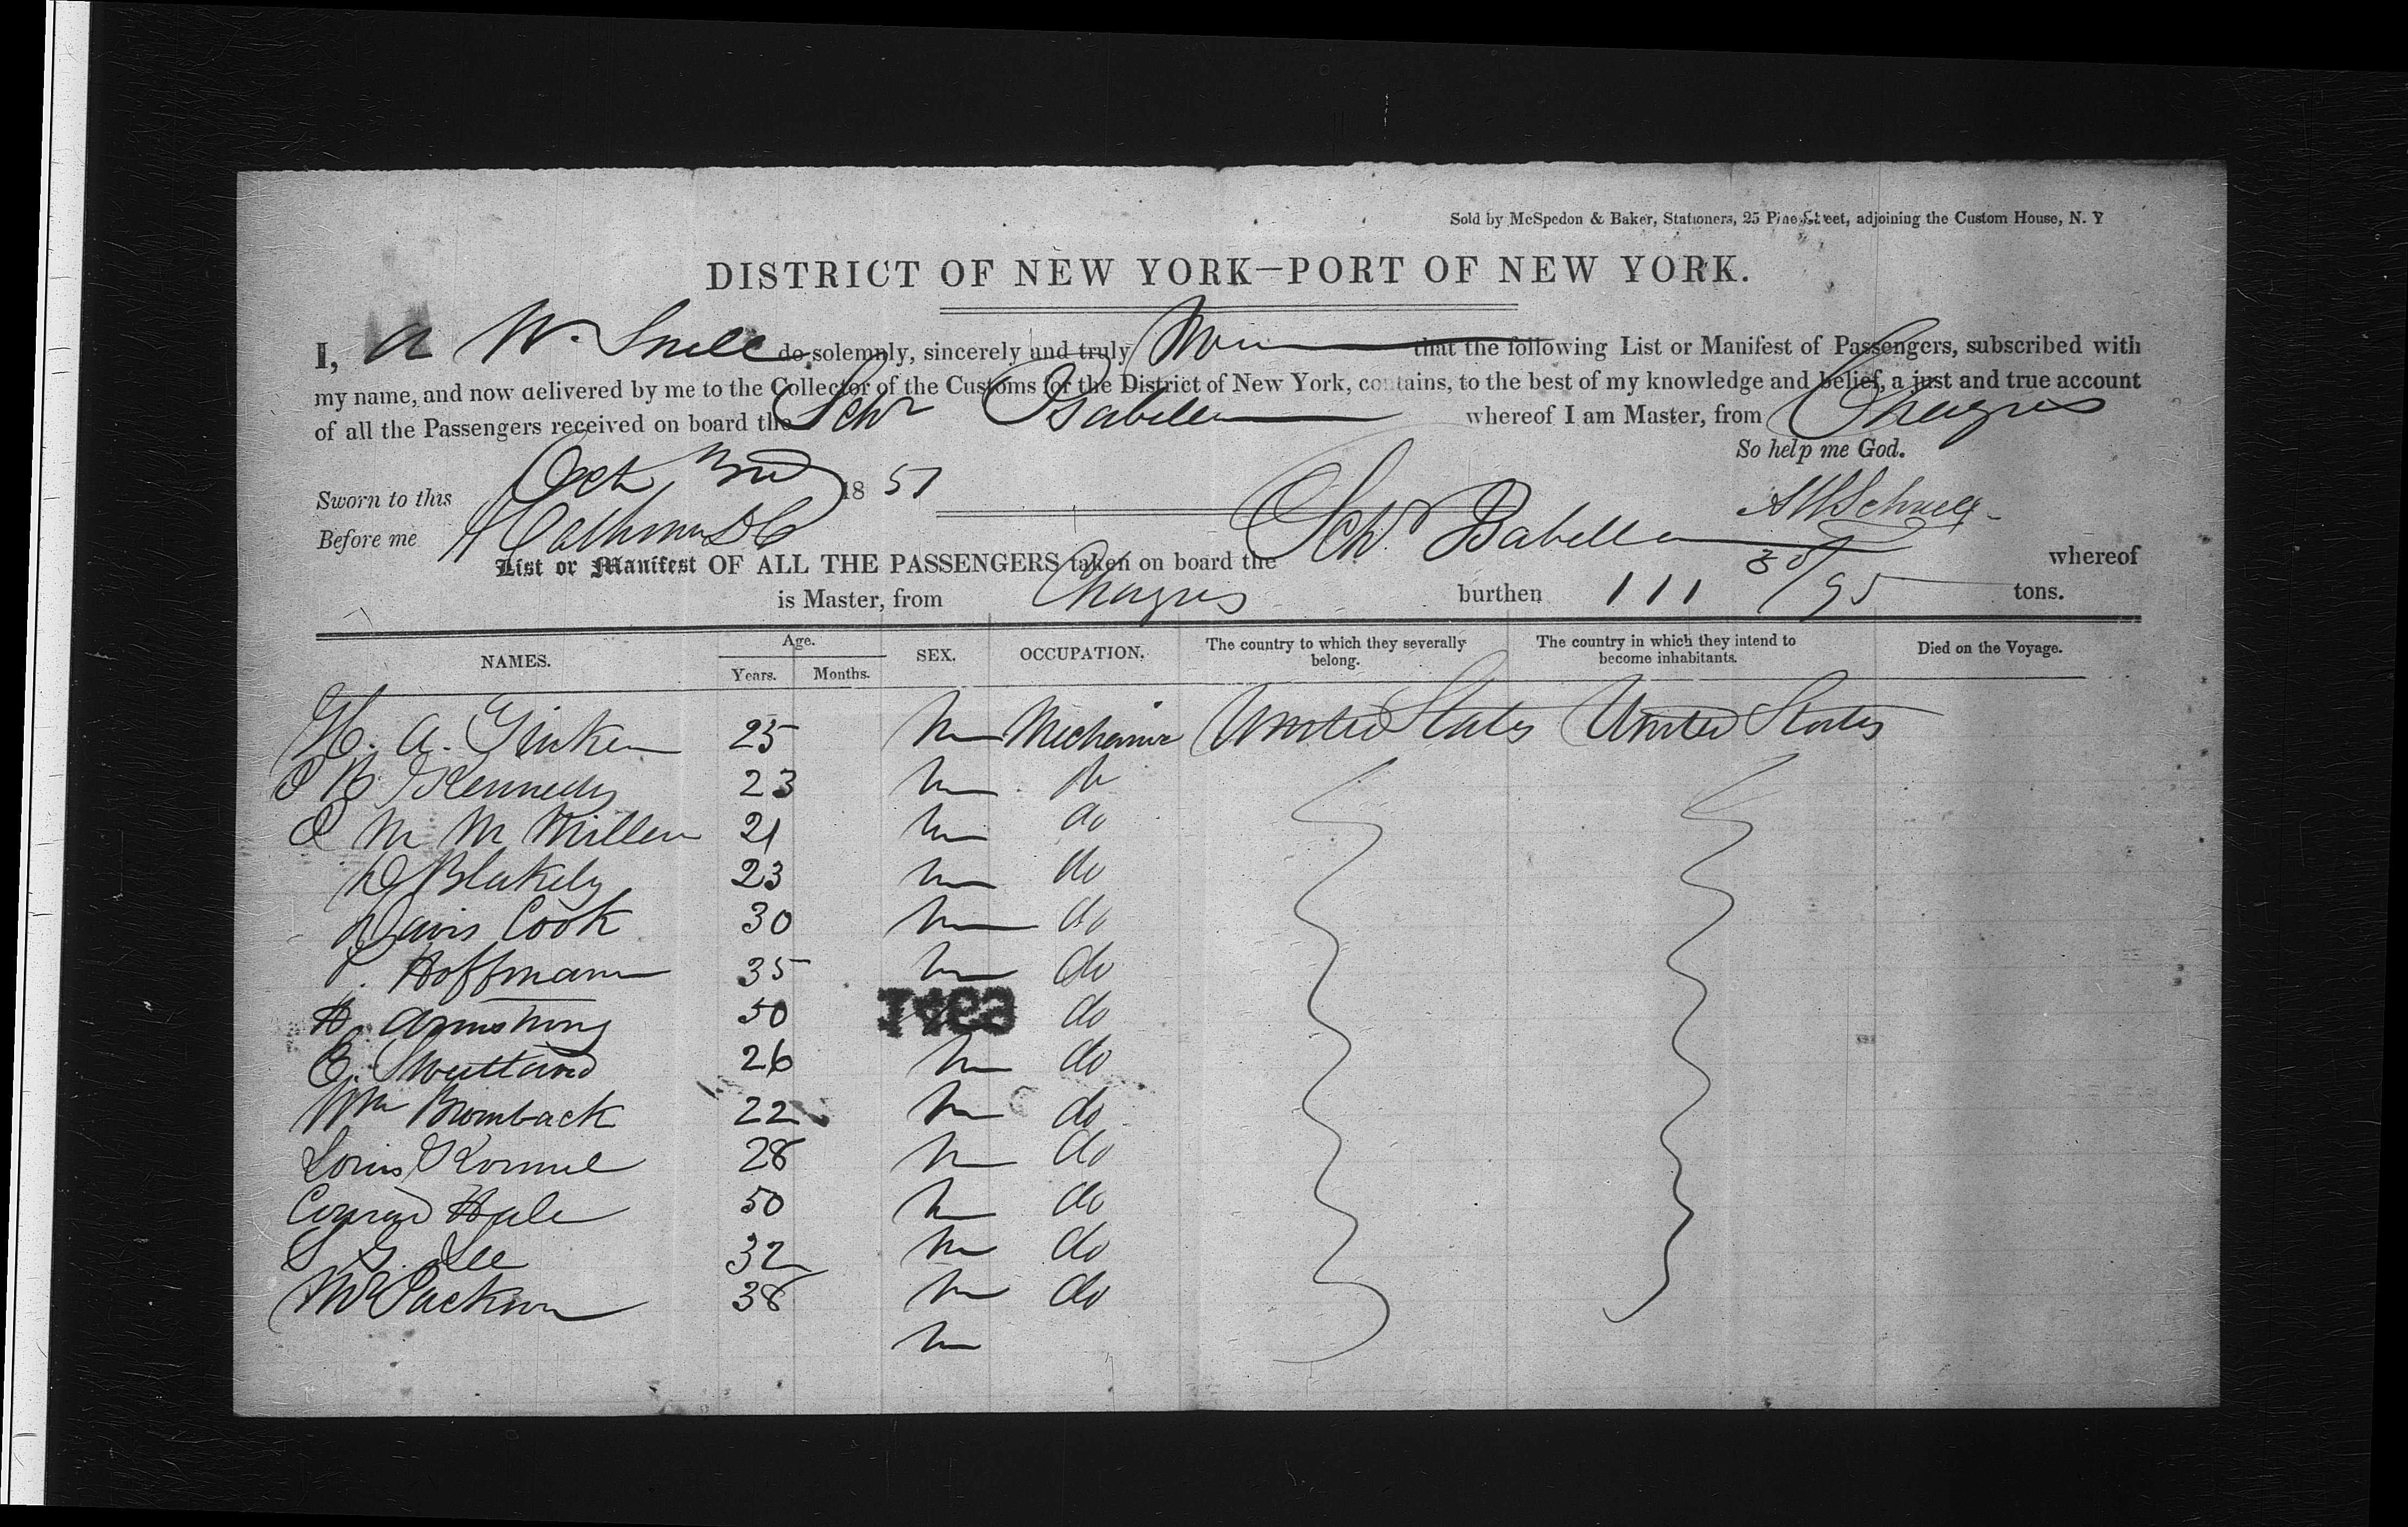 Sold by McSpedon & Baker, Stationers, 25 Pine Street, adjoining the Custom House, N. Y
DISTRICT OF NEW YORK—PORT OF NEW YORK.
I, A W. Snell do solemnly, sincerely and truly that the following List or Manifest of Passengers, subscribed with
my name, and now delivered by me to the Collector of the Customs for the District of New York, contains, to the best of my knowledge and belief, a just and true account
of all the Passengers received on board the Schr Isabella whereof I am Master, from Chagres
So help me God.
Sworn to this Oct 3rd 1851
A W Schnell
Before me
List or Manifest OF ALL THE PASSENGERS taken on board the Schr Isabella whereof
is Master, from Chagres burthen 111 30/95 tons.
NAMES. Age. Years. Months. SEX. OCCUPATION. The country to which they severally belong. The country in which they intend to become inhabitants. Died on the Voyage.
H. A. 25 m Mechanic United States United States
Kennedy 23 m do
M M Miller 21 m do
D Blakely 23 m do
Davis Cook 30 m do
Hoffmann 35 m do
H. Armstrong 50 do
E. 26 m do
Wm Bromback 22 m do
Louis 28 m do
Conrad Hale 50 m do
S G. Lee 32 m do
Jackson 38 m do
m